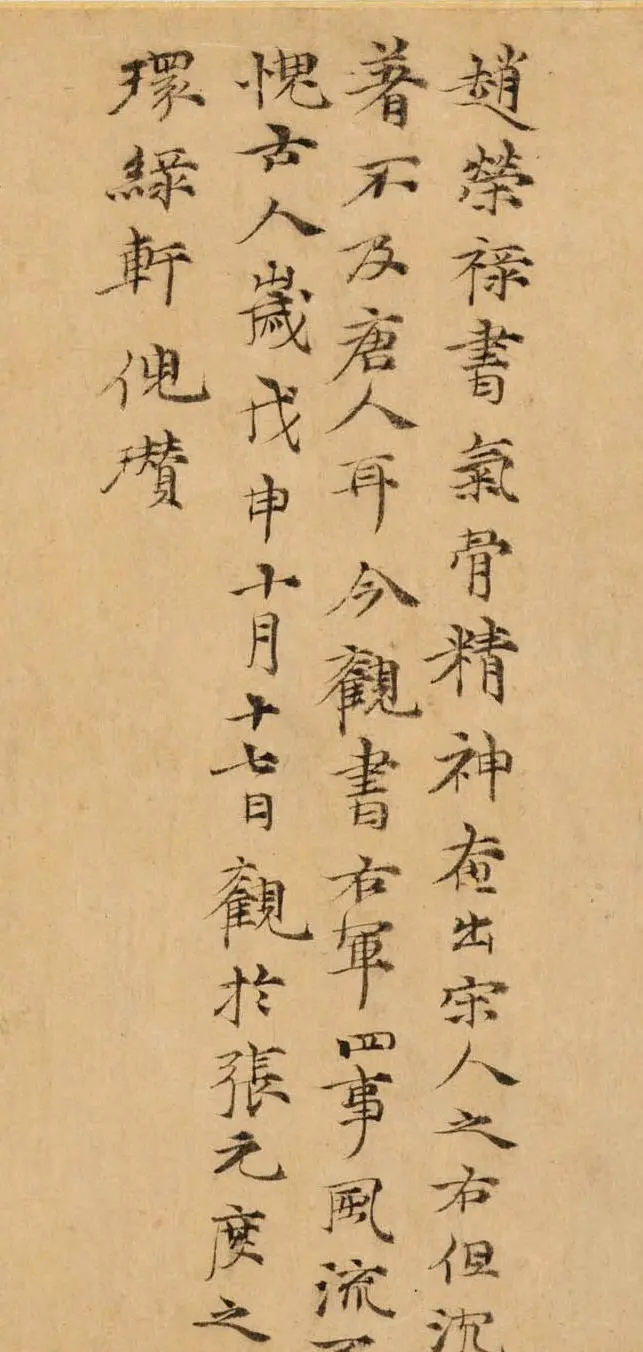 趙榮祿書氣骨精神直出宋人之右但沉
著不及唐人耳今觀書右軍四事風流不
愧古人歲戊申十月十七日觀於張元度之
環綠軒倪瓚